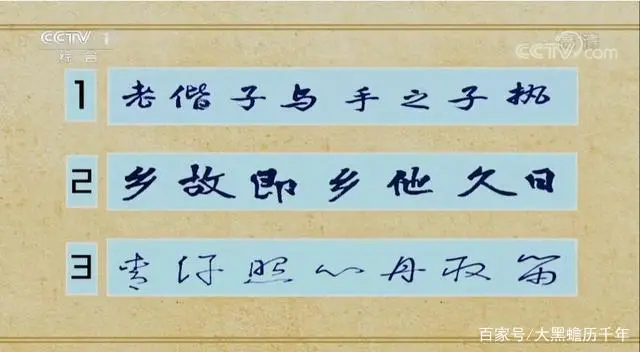 CCTV 1
综合
CCTV.com
高清
1 老偕子与手之子执
2 乡故即乡他久日
3 青汗照心丹取留
百家号/大黑蟾历千年